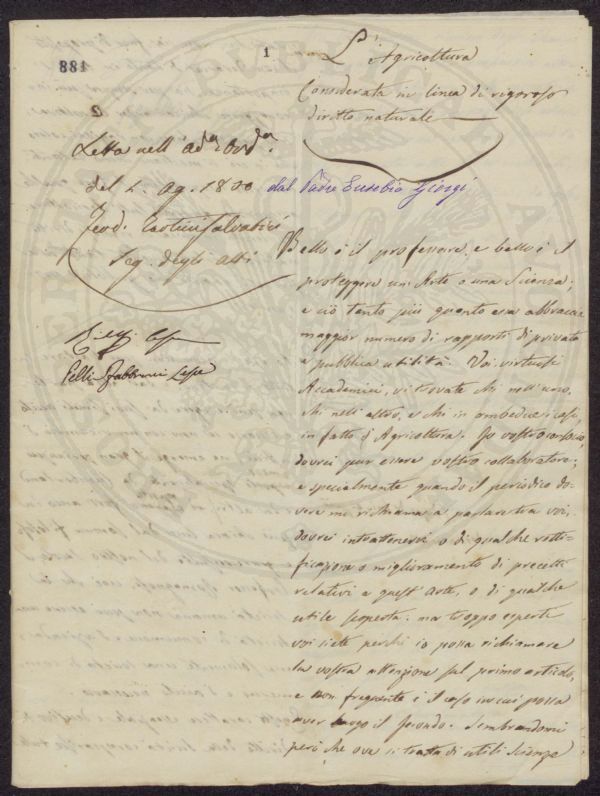 881
1
L'Agricoltura
Considerata in linea di rigoroso
diritto naturale
Letta nell'
del 2. ag. 1800 dal Padre Eusebio Giorgi
Seg. degli atti
Pelli Fabbroni
Bello è il professare, e bello è il
proteggere un Arte o una Scienza;
e ciò tanto più quanto essa abbraccia
maggior numero di rapporti di privata
e pubblica utilità. Voi virtuosi
Accademici, vi trovate chi nell'uno,
chi nell'altro, e chi in ambedue i casi,
in fatto d'Agricoltura. Io vostro socio,
dovrei pur essere vostro collaboratore;
e specialmente quando il periodico do-
vere mi richiama a parlare tra voi,
dovrei intrattenervi o di qualche retti-
ficazione o miglioramento di precetti
relativi a quest'Arte, o di qualche
utile scoperta. ma troppo esperti
voi siete perchè io possa richiamare
la vostra attenzione sul primo articolo,
e non frequente è il caso in cui possa
aver luogo il secondo. Sembrandomi
però che ove si tratta di utili Scienze